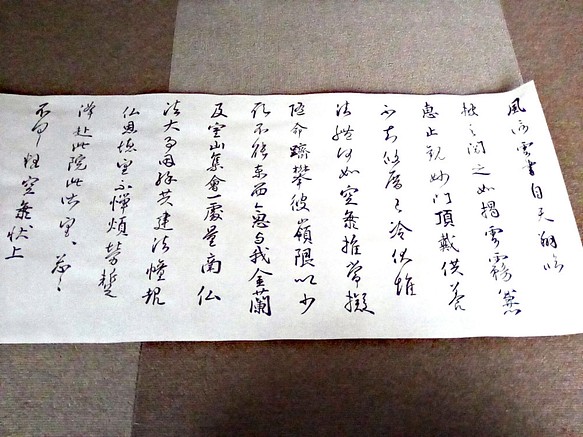 風信雲書自天翔臨
披之閲之如掲雲霧兼
恵止観妙門頂戴供養
不知攸厝已冷伏惟
法體何如空海推常擬
随命躋攀彼嶺限以少
願不能東西今思与我金蘭
及室山集會一處量商仏
法大事因縁共建法幢報
仏恩徳望不憚煩勞蹔
降赴此院此所望々忩々
不具釈空海状上